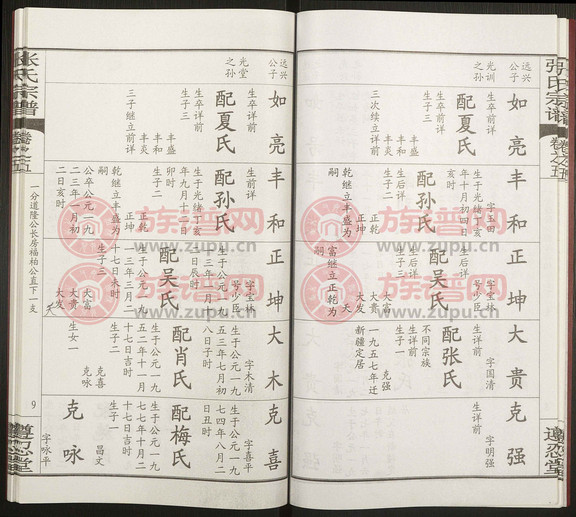 张氏宗谱
卷之五
遵忍堂
远兴
公子
光训
之孙
如亮
生卒详前
配夏氏
生卒详前
生子三
丰盛
丰和
丰炎
三次续立前详
丰和
字玉田
生于光绪丁亥
年十月初四日
亥时
配孙氏
生后详
生子二
正乾
正坤
乾继立丰盛为
嗣
正坤
字宝林
号少臣
生后详
配吴氏
生后详
生子三
大富
大贵
大发
夭
富继立正乾为
嗣
大贵
字国清
生详前
配张氏
不同宗族
生详前
生子一
克强
一九五七年迁
新疆定居
克强
字明强
生详前
张氏宗谱
卷之五
一分道隆公长房福柏公直下一支
9
遵忍堂
远兴
公子
光堂
之孙
如亮
生卒详前
配夏氏
生卒详前
生子三
丰盛
丰和
丰炎
三子继立前详
丰和
生前详
配孙氏
生于光绪丁亥
年九月十二日
卯时
生子二
正乾
正坤
乾继立丰盛为
嗣
公卒公元一九
二三年一月初
二日亥时
正坤
字宝林
号少臣
生于公元一九
一三年一月十
二日辰时
配吴氏
生于公元一九
一三年三月二
十七日未时
生子三
大富
大贵
大发
夭
大木
字木清
生于公元一九
五三年七月初
八日子时
配肖氏
生于公元一九
五二年十一月
十七日吉时
生子二
克喜
克咏
生女一
克喜
字喜平
生于公元一九
七四年八月二
日丑时
配梅氏
生于公元一九
七七年十二月
十七日吉时
生子一
昌文
克咏
字咏平
族谱网
www.zupu.cn